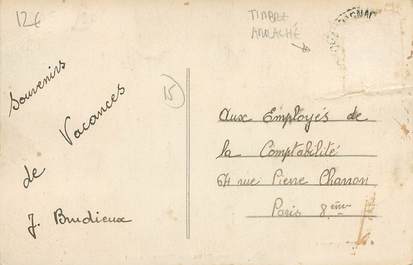 12€
TIMBRE
ARRACHÉ
Souvenirs
de Vacances
J. Brudieux
15
Aux Employés de
la Comptabilité
64 rue Pierre Charron
Paris 8ème